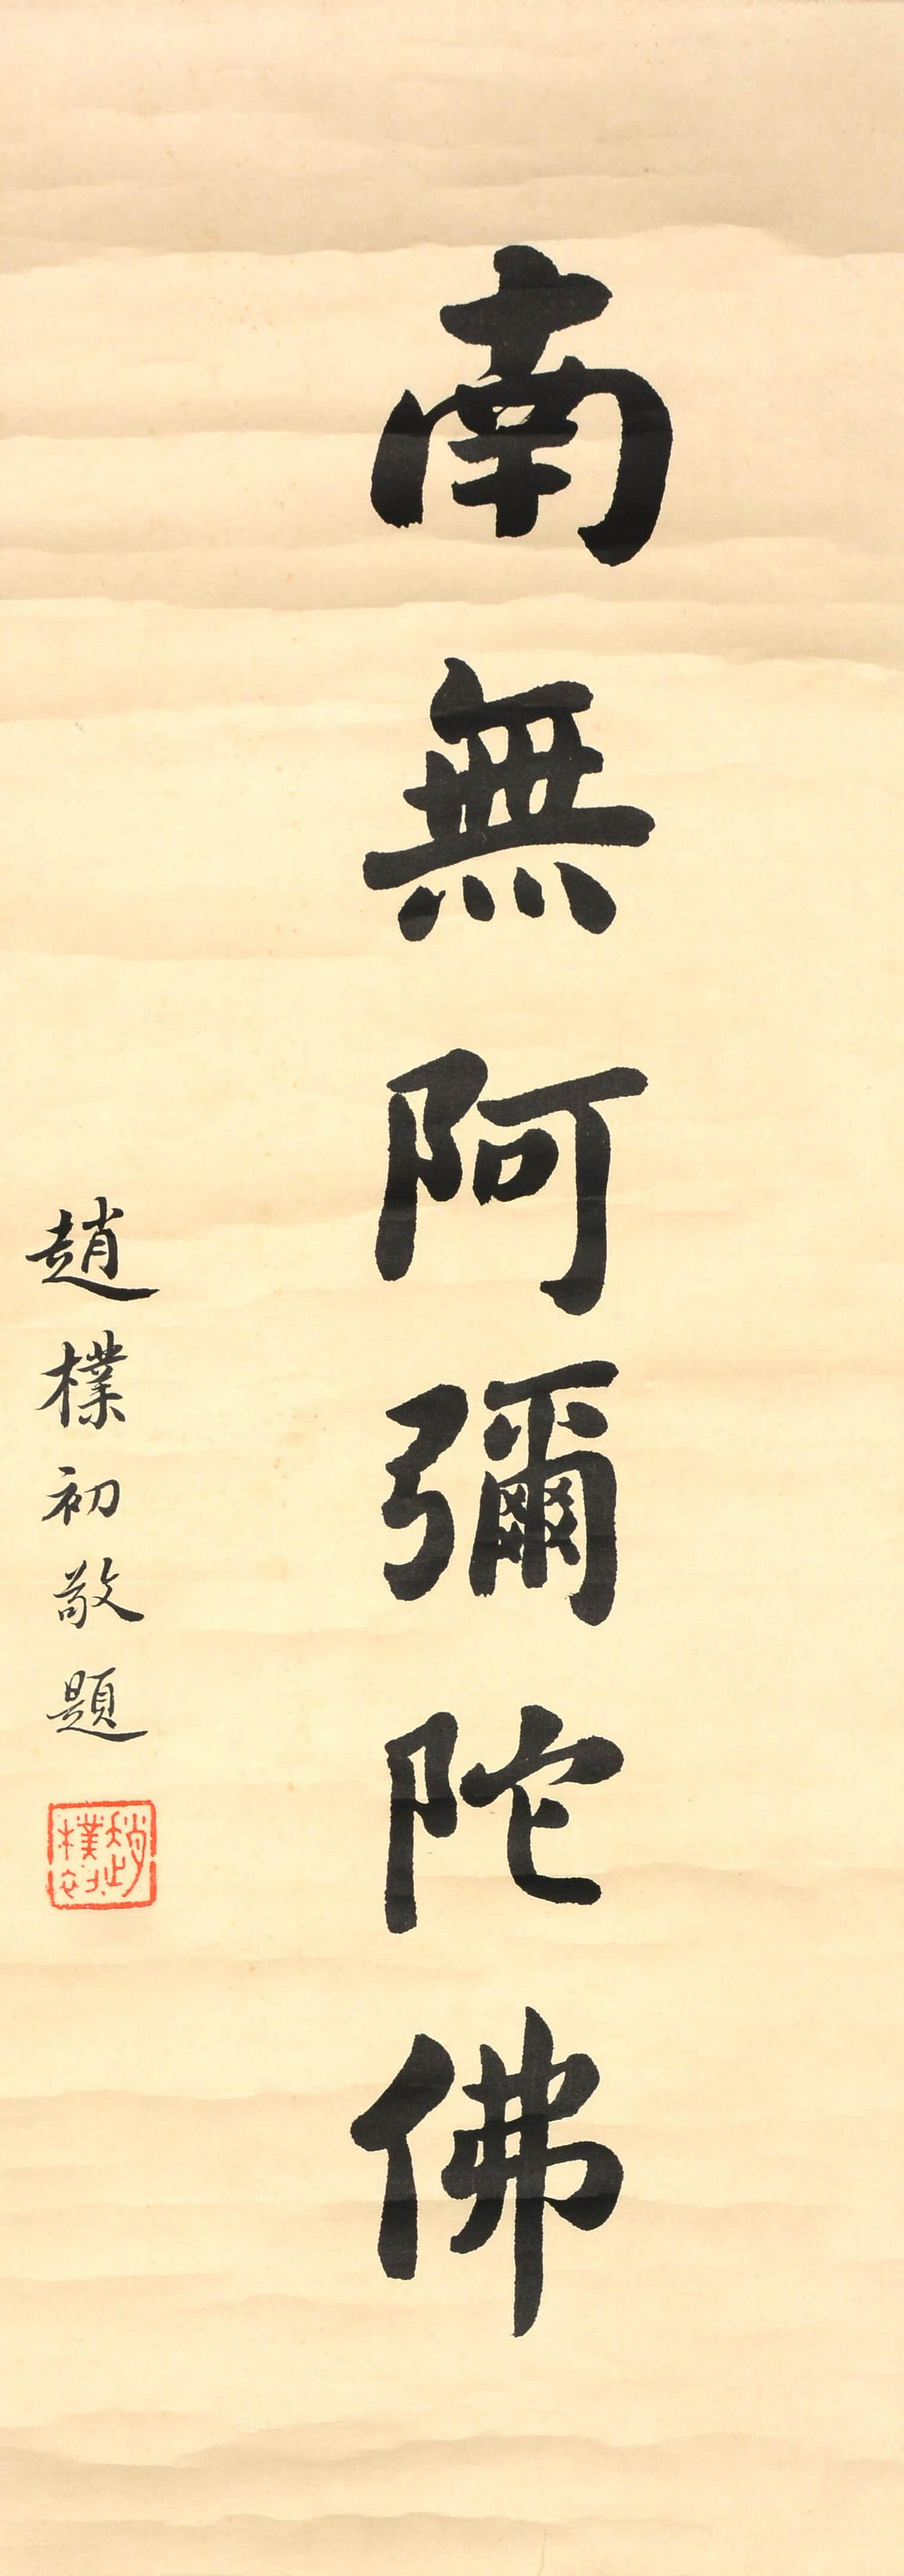 南無阿彌陀佛
趙樸初敬題
趙樸初